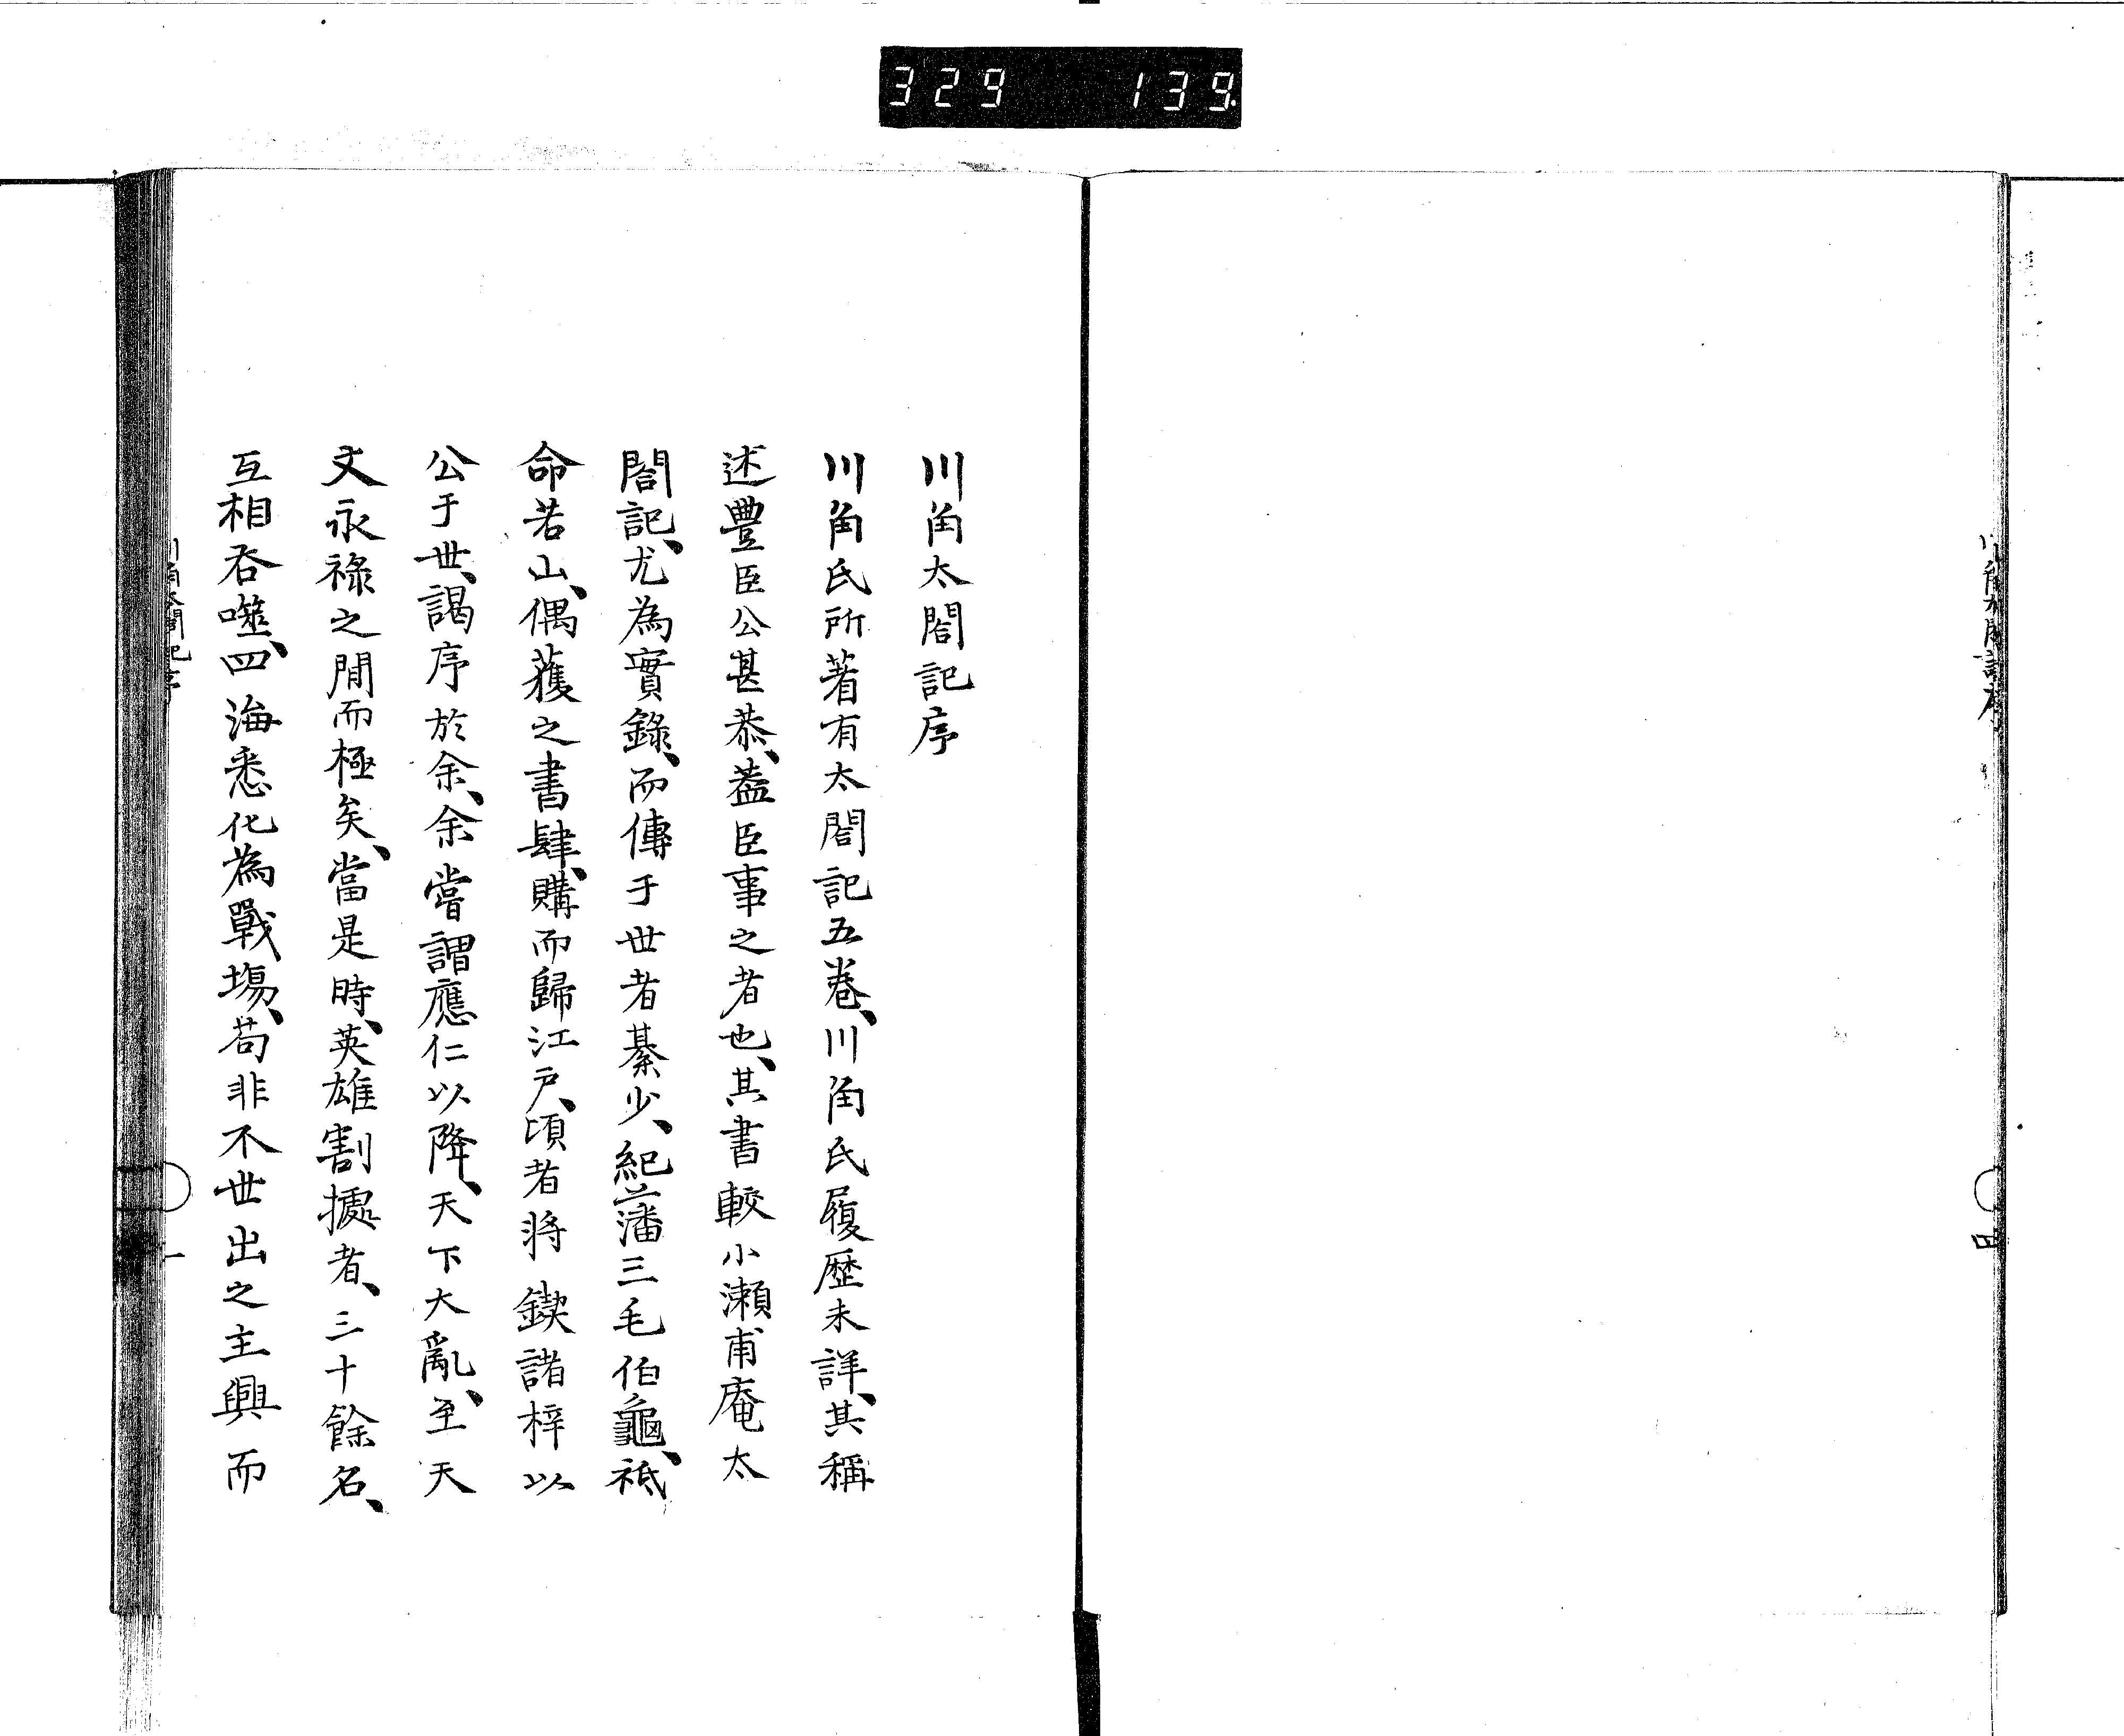 329 139
川角太閤記序
四
川角太閤記序
川角氏所著有太閤記五巻、川角氏履歴未詳、其稱
述豐臣公甚恭、蓋臣事之者也、其書較小瀬甫庵太
閤記、尤為實錄、而傳于世者綦少、紀藩三毛伯龜、祗
命若山、偶獲之書肆、購而歸江戸、頃者將鍥諸梓以
公于世、謁序於余、余嘗謂應仁以降、天下大亂、至天
文永祿之間而極矣、當是時、英雄割據者、三十餘名、
互相吞噬、四海悉化為戰場、苟非不世出之主興而
川角太閤記序
一